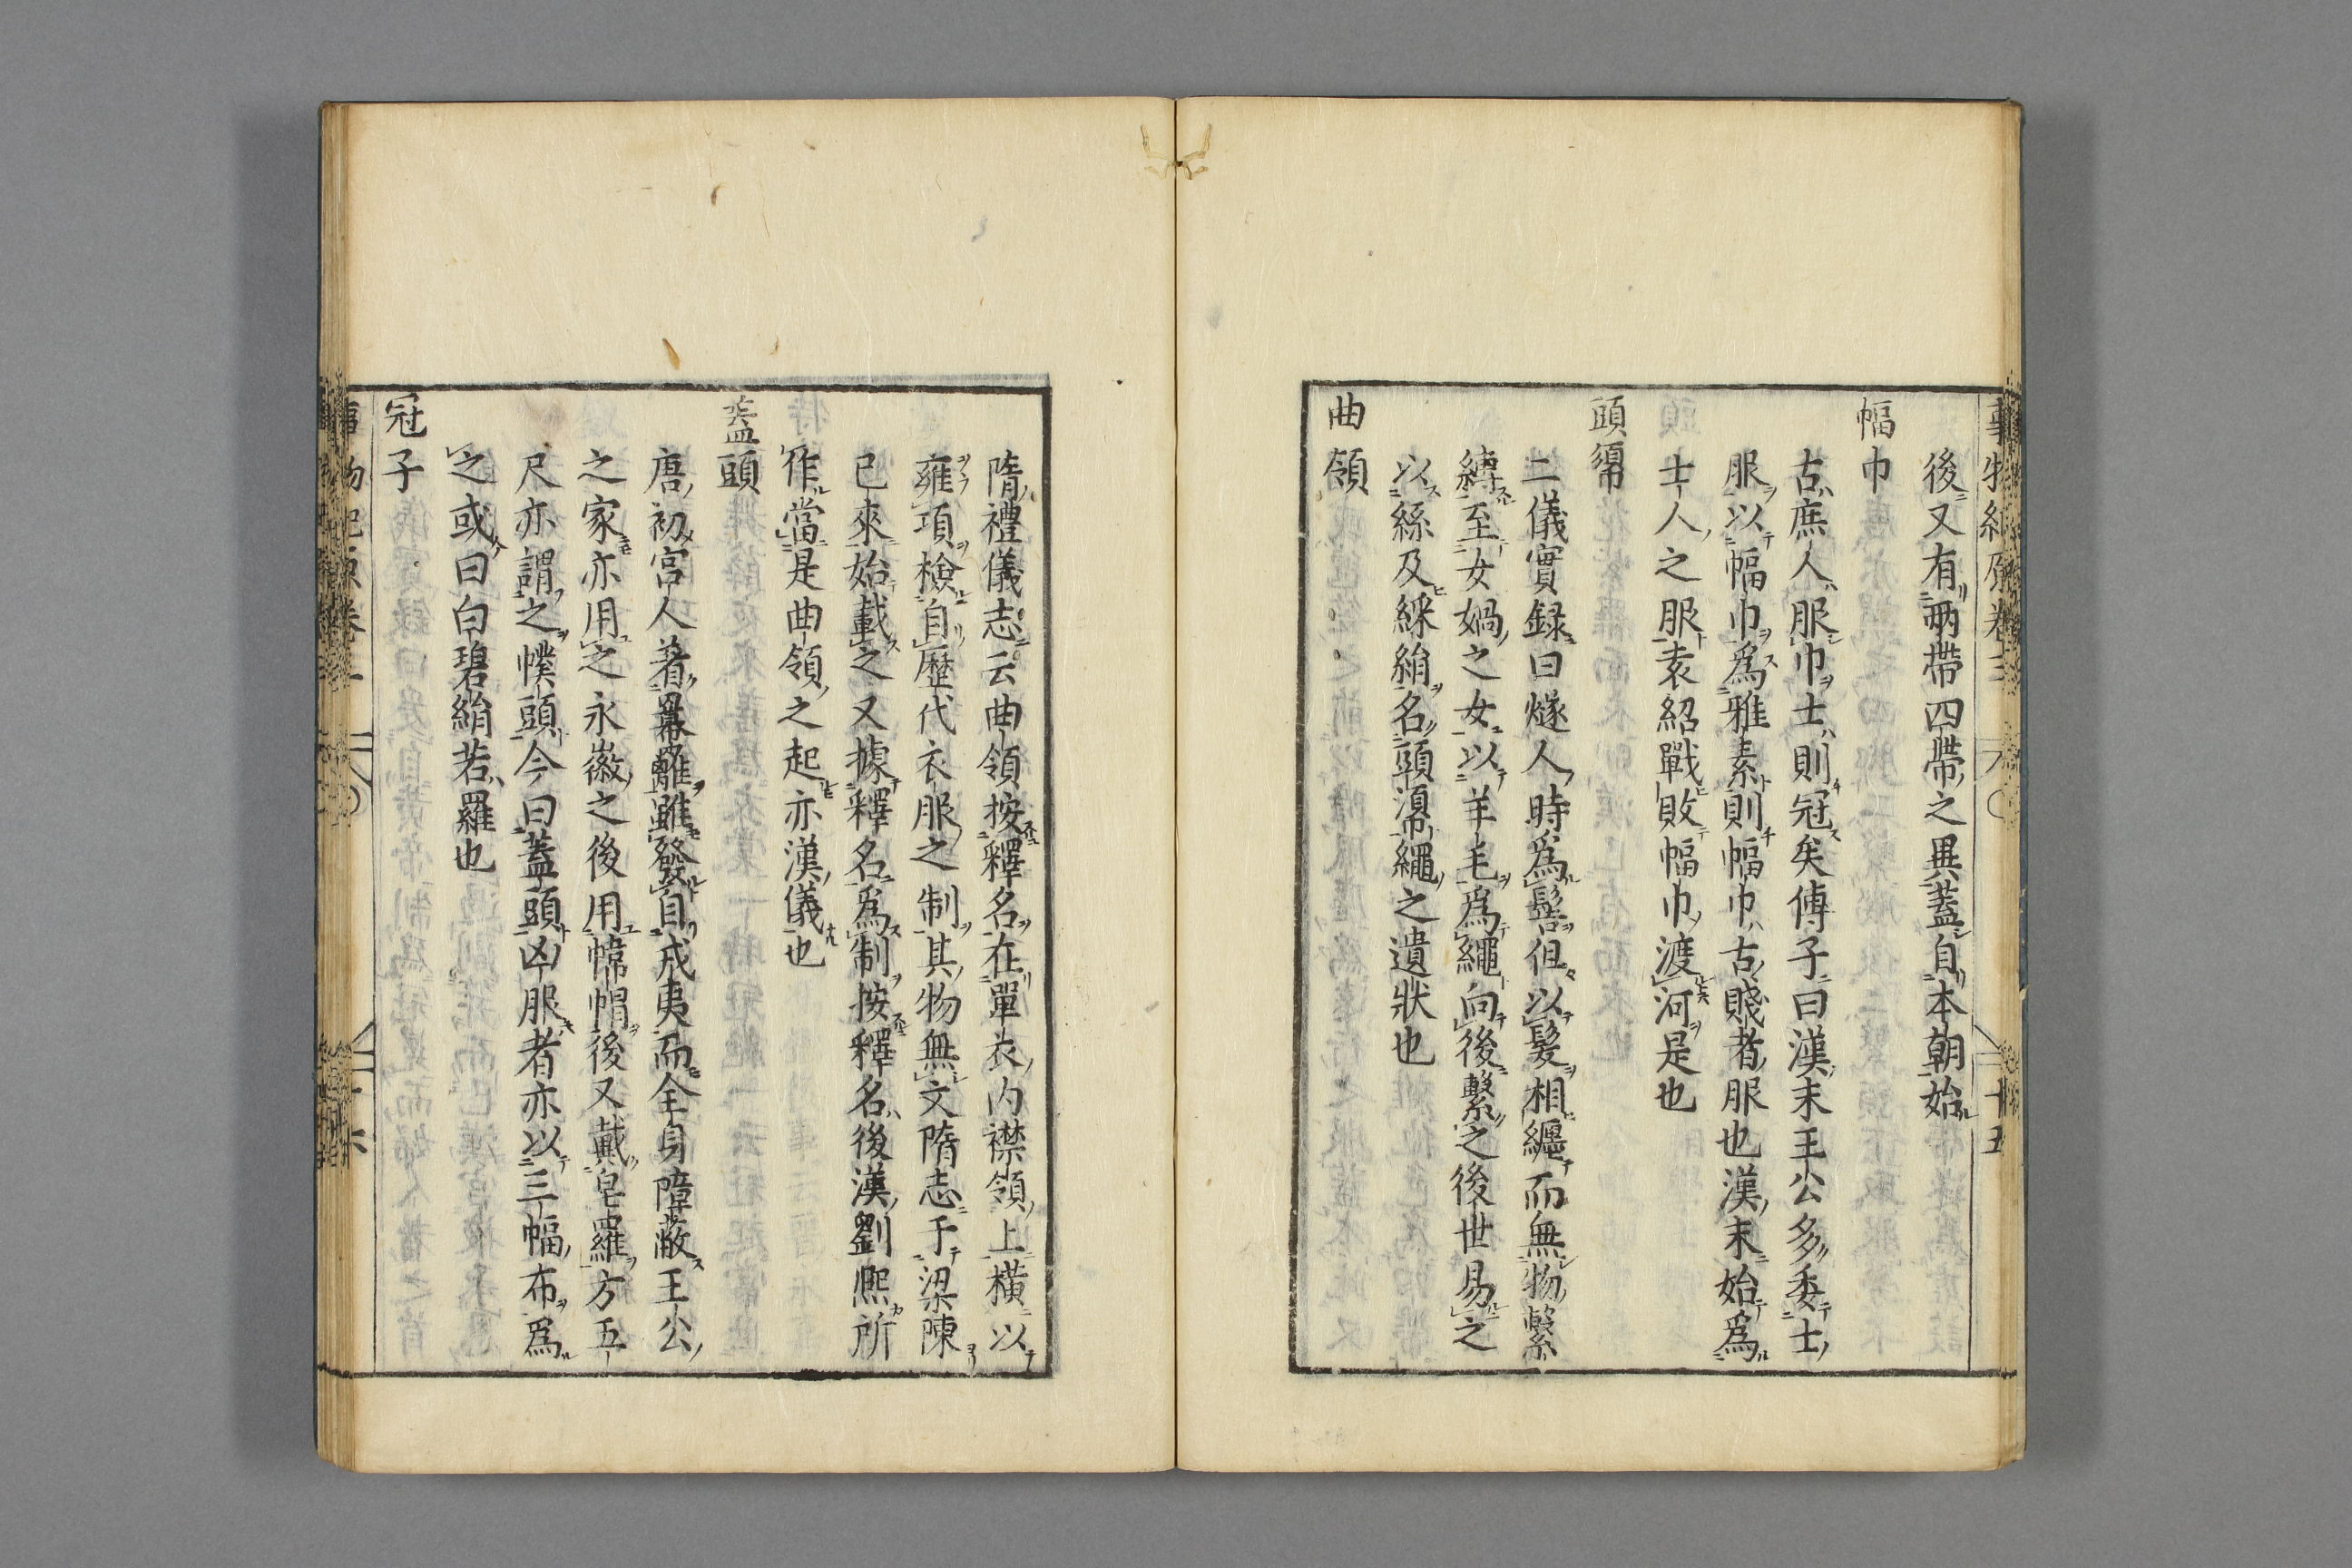 後又有兩帶四帶之異蓋自本朝始
幅巾
古庶人服巾士則冠矣傅子曰漢末王公多委士
服以幅巾爲雅素則幅巾古賤者服也漢末始爲
士人之服袁紹戰敗幅巾渡河是也
頭𢄼
二儀實録曰燧人時爲髻但以髮相纒而無物繫
縛至女媧之女以羊毛爲繩向後繫之後世易之
以絲及綵絹名頭𢄼繩之遺狀也
曲領
隋禮儀志云曲領按釋名在單衣内襟領上橫以
雍項檢自歷代衣服之制其物無文隋志于梁陳
已來始載之又據釋名爲制按釋名後漢劉熈所
作當是曲領之起亦漢儀也
蓋頭
唐初宮人著冪䍦雖發自戎夷而全身障蔽王公
之家亦用之永徽之後用幃帽後又戴皂羅方五
尺亦謂之幞頭今曰蓋頭凶服者亦以三幅布爲
之或曰白碧絹若羅也
冠子